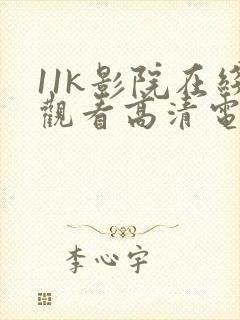 11K影院在綫
觀看高清電
李心宇